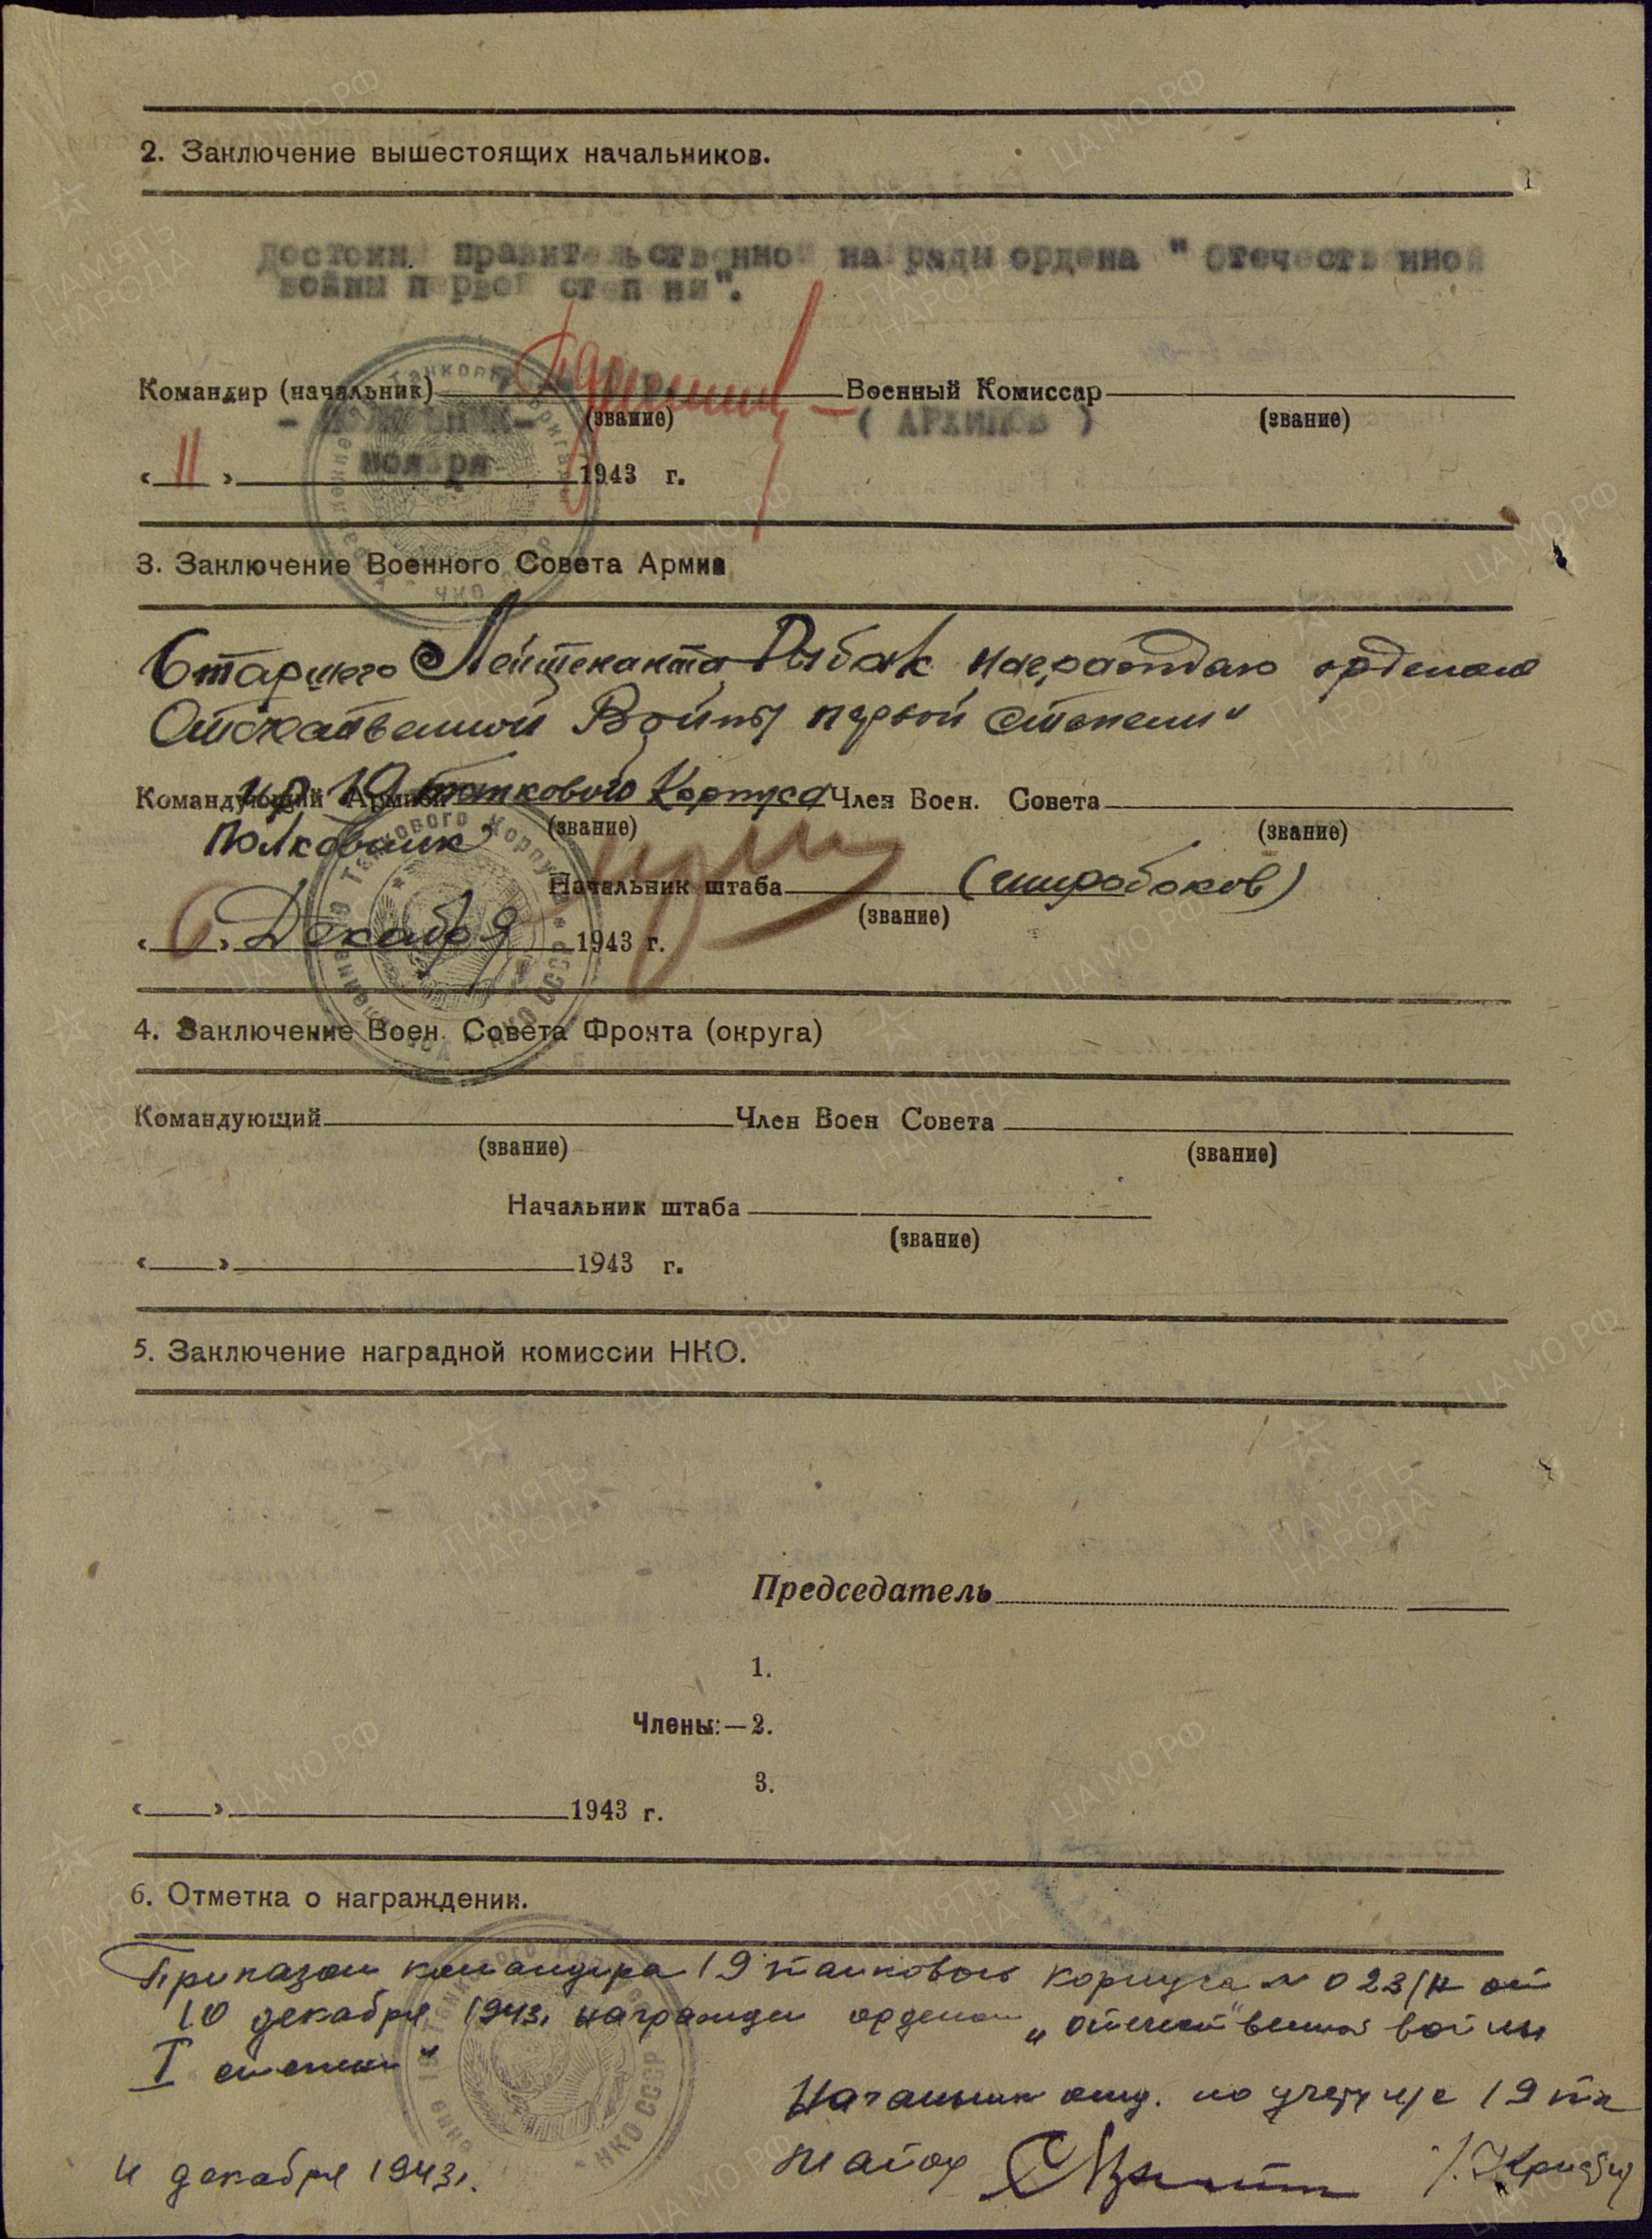 2. Заключение вышестоящих начальников.
Достоин правительственной награды ордена "Отечественной
войны первой степени".
Командир (начальник) Военный Комиссар
- ПОЛКОВНИК - (звание) ( АРХИПОВ ) (звание)
« 11 » ноября 1943 г.
3. Заключение Военного Совета Армии
Старшего Лейтенанта Рыбак награждаю орденом
Отечественной Войны первой степени"
Командующий Армией 19 танкового Корпуса Член Воен. Совета
Полковник (звание) (звание)
Начальник штаба (Широбоков)
(звание)
« 6 » Декабря 1943 г.
4. Заключение Воен. Совета Фронта (округа)
Командующий Член Воен Совета
(звание) (звание)
Начальник штаба
(звание)
« » 1943 г.
5. Заключение наградной комиссии НКО.
Председатель
1.
Члены:—2.
3.
« » 1943 г.
6. Отметка о награждении.
Приказом командира 19 танкового корпуса № 023/н от
10 декабря 1943г. награжден орденом „отечественной войны
I степени"
Начальник отд. по учету л/с 19 тк
майор
11 декабря 1943г.
ПАМЯТЬ НАРОДА
ЦАМО.РФ